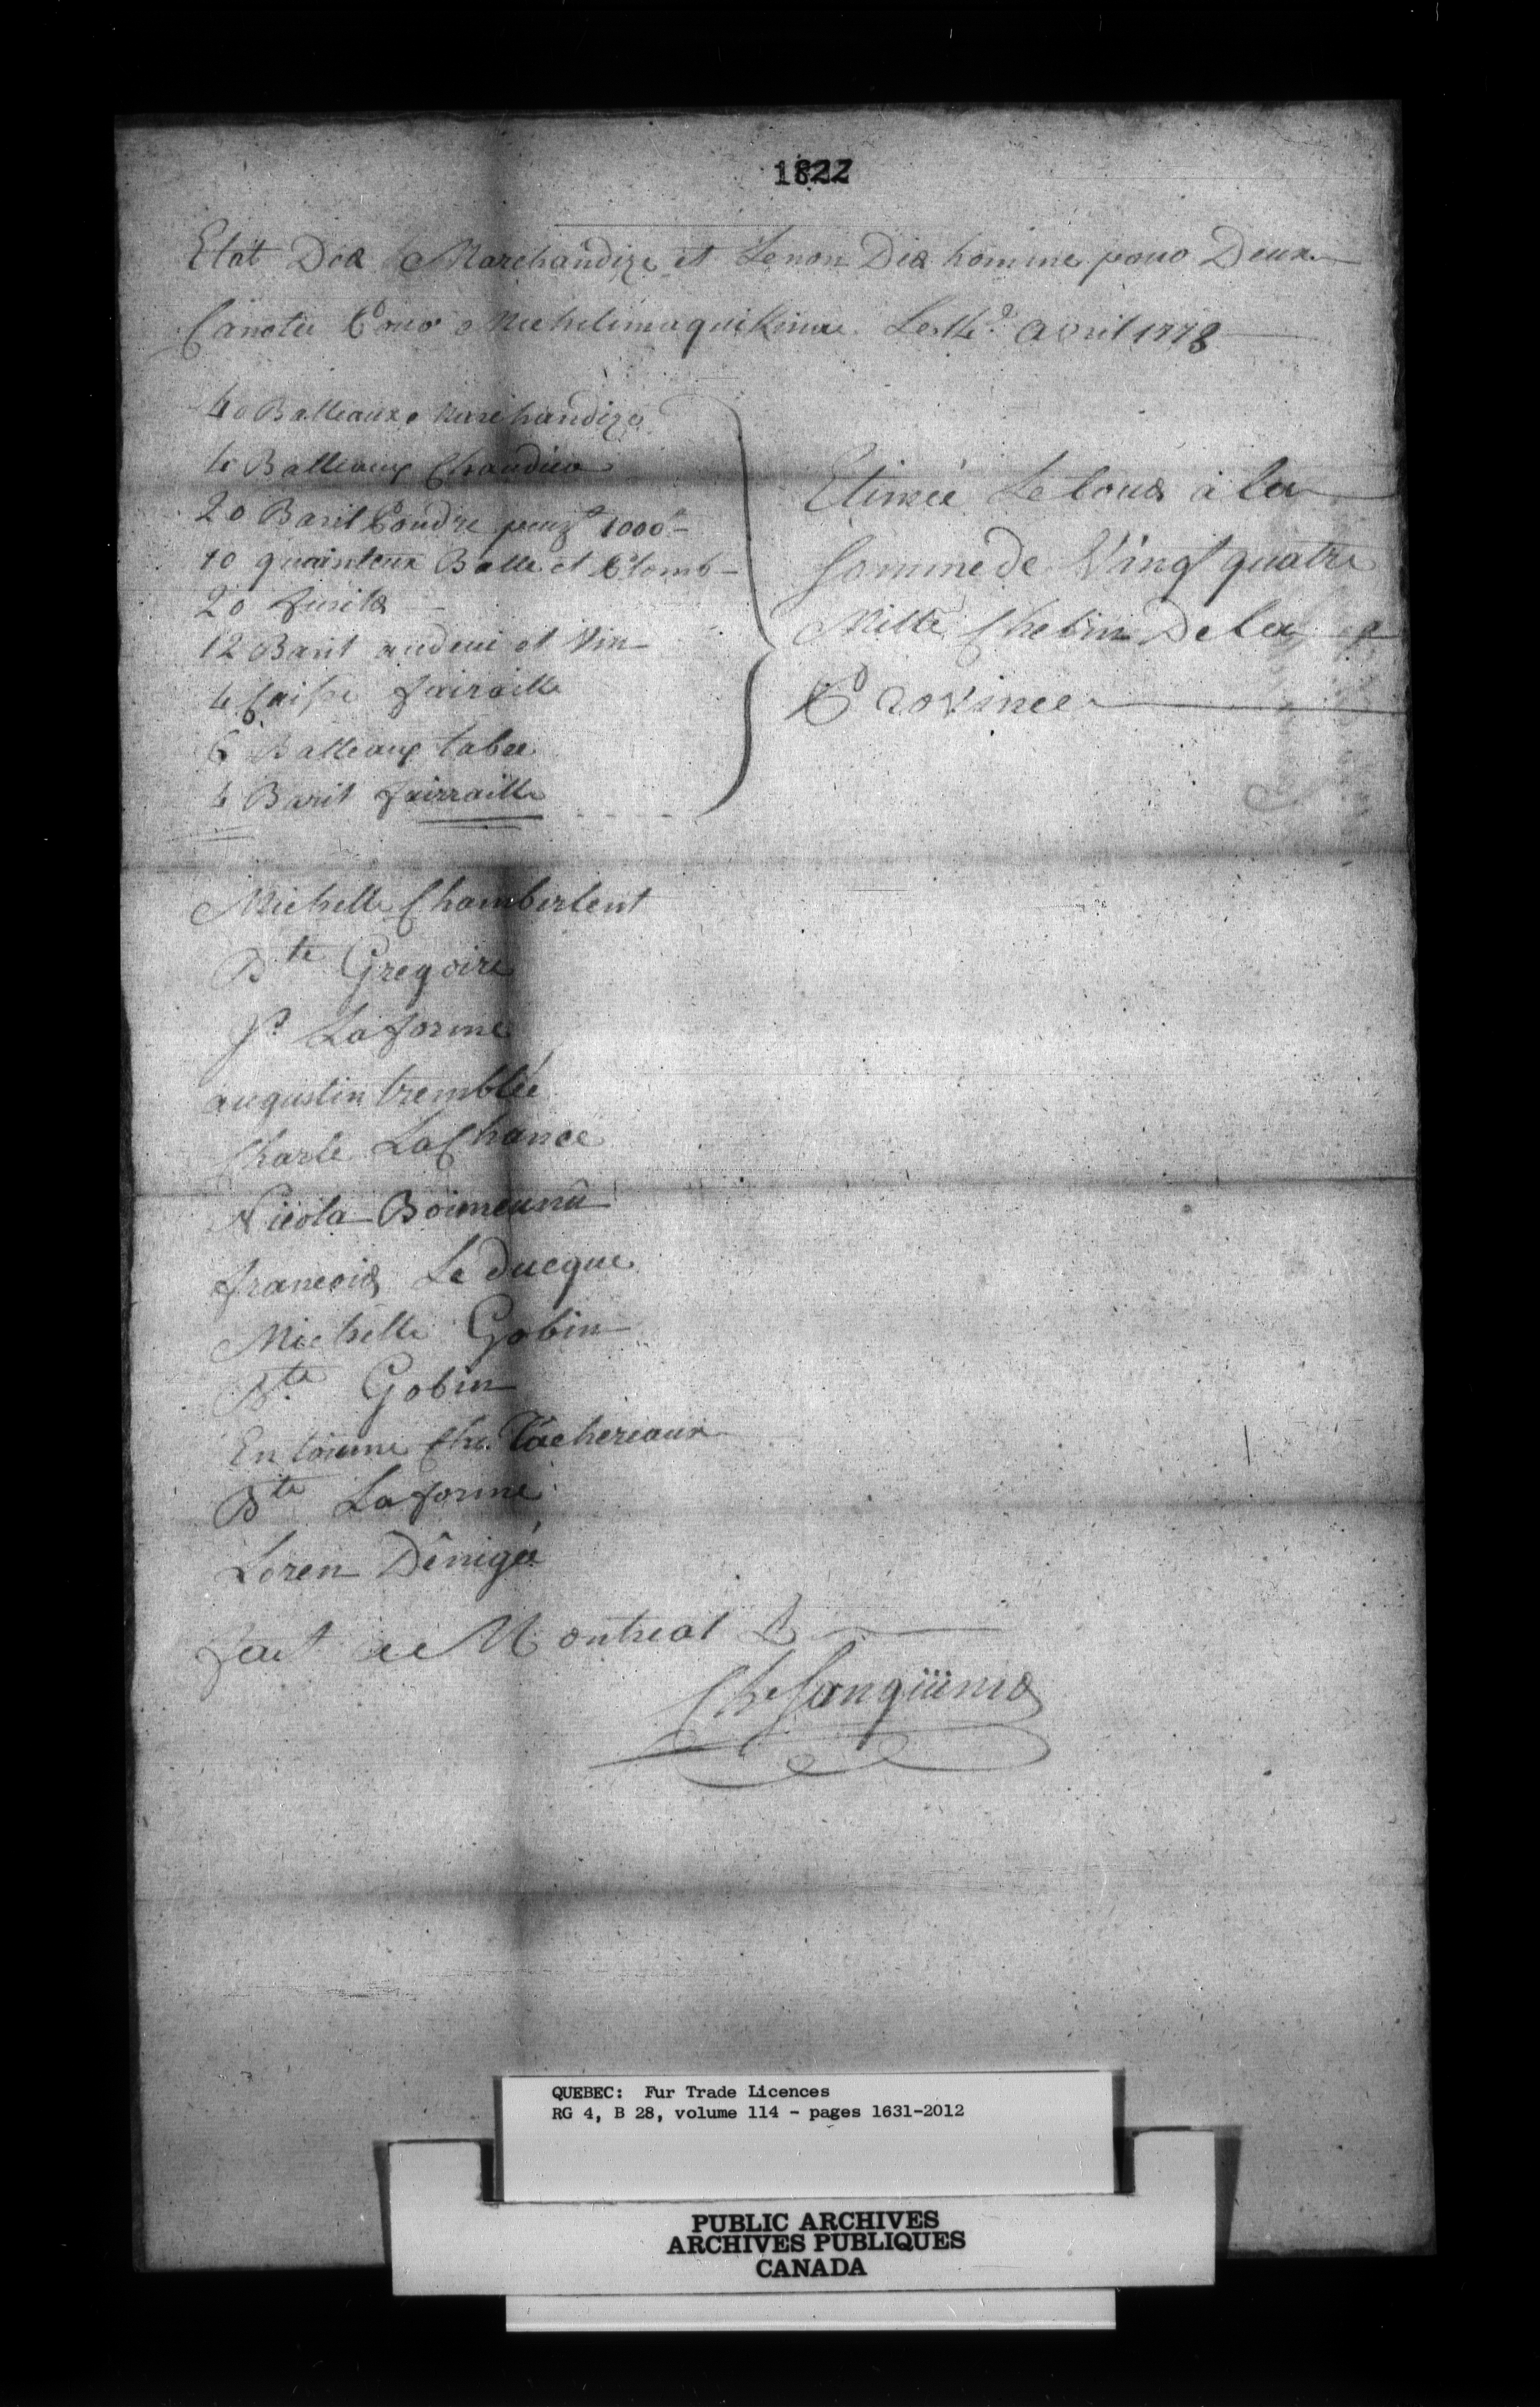 1822
Etat Des Marchandize et Le non Des homme pour Deux
Canotee Pour Michelimaquikinac Le 14e avril 1778
40 Balleaux Marchandize
4 Balleaux Chaudier
20 Baril Poudre peuzt 1000#
10 quainteux Balle et Plomb
20 fusils
12 Baril audevi et Vin
4 Caisse fairaille
6 Balleaux tabac
4 Baril fairraille
Etimée Le tous à la
Somme de Vingt quatre
Mille Chelin De la
Province
Michelle Chamberlent
Bte Gregoire
Js Laforme
augustin tremblée
Charle LaChance
Nicola
francois Le ducque
Michelle Gobin
Bte Gobin
Entoinne Che. Tachereaux
Bte Laforme
Loren Dênigée
fait a Montreal
Che Sanguinis
QUEBEC: Fur Trade Licences
RG 4, B 28, volume 114 - pages 1631-2012
PUBLIC ARCHIVES
ARCHIVES PUBLIQUES
CANADA